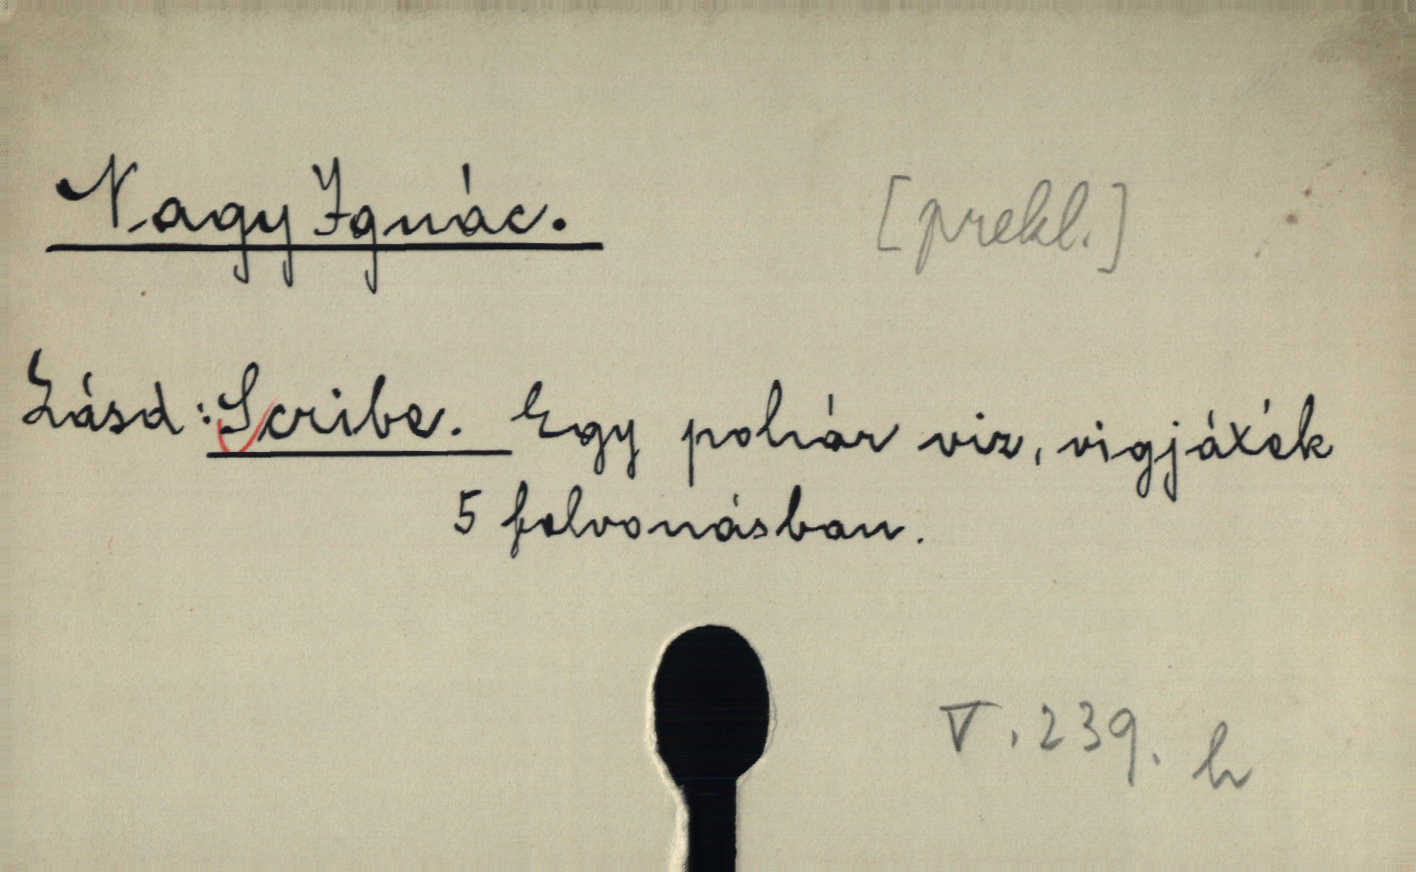 Nagy Ignác. [prekl.]
Lásd: Scribe. Egy pohár viz, vigjáték
5 felvonásban.
V. 239. h